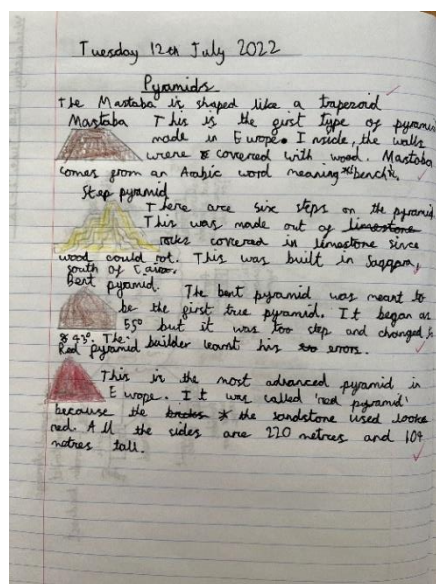 Tuesday 12th July 2022
Pyramids
The Mastaba is shaped like a trapezoid
Mastaba This is the first type of pyramid
made in Europe. Inside, the walls
were covered with wood. Mastaba
comes from an Arabic word meaning "bench".
Step pyramid
There are six steps on the pyramid
This was made out of limestone
rocks covered in limestone since
wood could rot. This was built in Saqqara,
south of Cairo.
Bent pyramid. The bent pyramid was meant to
be the first true pyramid. It began as
55° but it was too step and changed to
43°. The builder learnt his errors.
Red pyramid
This is the most advanced pyramid in
Europe. It was called 'red pyramid'
because the bricks the sandstone used looks
red. All the sides are 220 metres and 104
metres tall.